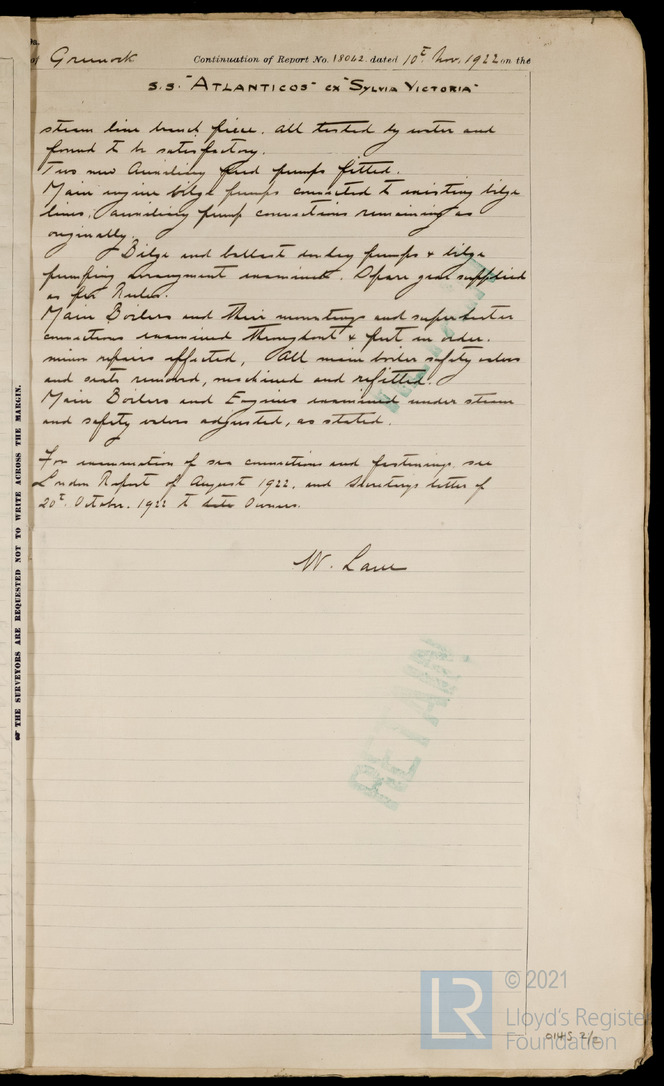 of Greenock Continuation of Report No. 18062 dated 10th Nov. 1922 on the
S.S. "ATLANTICOS" ex "SYLVIA VICTORIA"
steam line branch piece. All tested by water and
found to be satisfactory.
Two new Auxiliary feed pumps fitted.
Main engine bilge pumps connected to existing bilge
lines, auxiliary pump connections remaining as
originally.
Bilge and ballast donkey pumps & bilge
pumping arrangement examined. Spare gear supplied
as per Rules.
Main Boilers and their mountings and superheater
connections examined throughout & put in order.
minor repairs effected, All main boiler safety valves
and seats removed, machined and refitted.
Main Boilers and Engines examined under steam
and safety valves adjusted, as stated.
For examination of sea connections and fastenings, see
London Report of August 1922, and Secretarys letter of
20th October. 1922 to Owners.
W. Lane
RETAIN
RETAIN
THE SURVEYORS ARE REQUESTED NOT TO WRITE ACROSS THE MARGIN.
LR
© 2021
Lloyd's Register
Foundation
0145 2/2